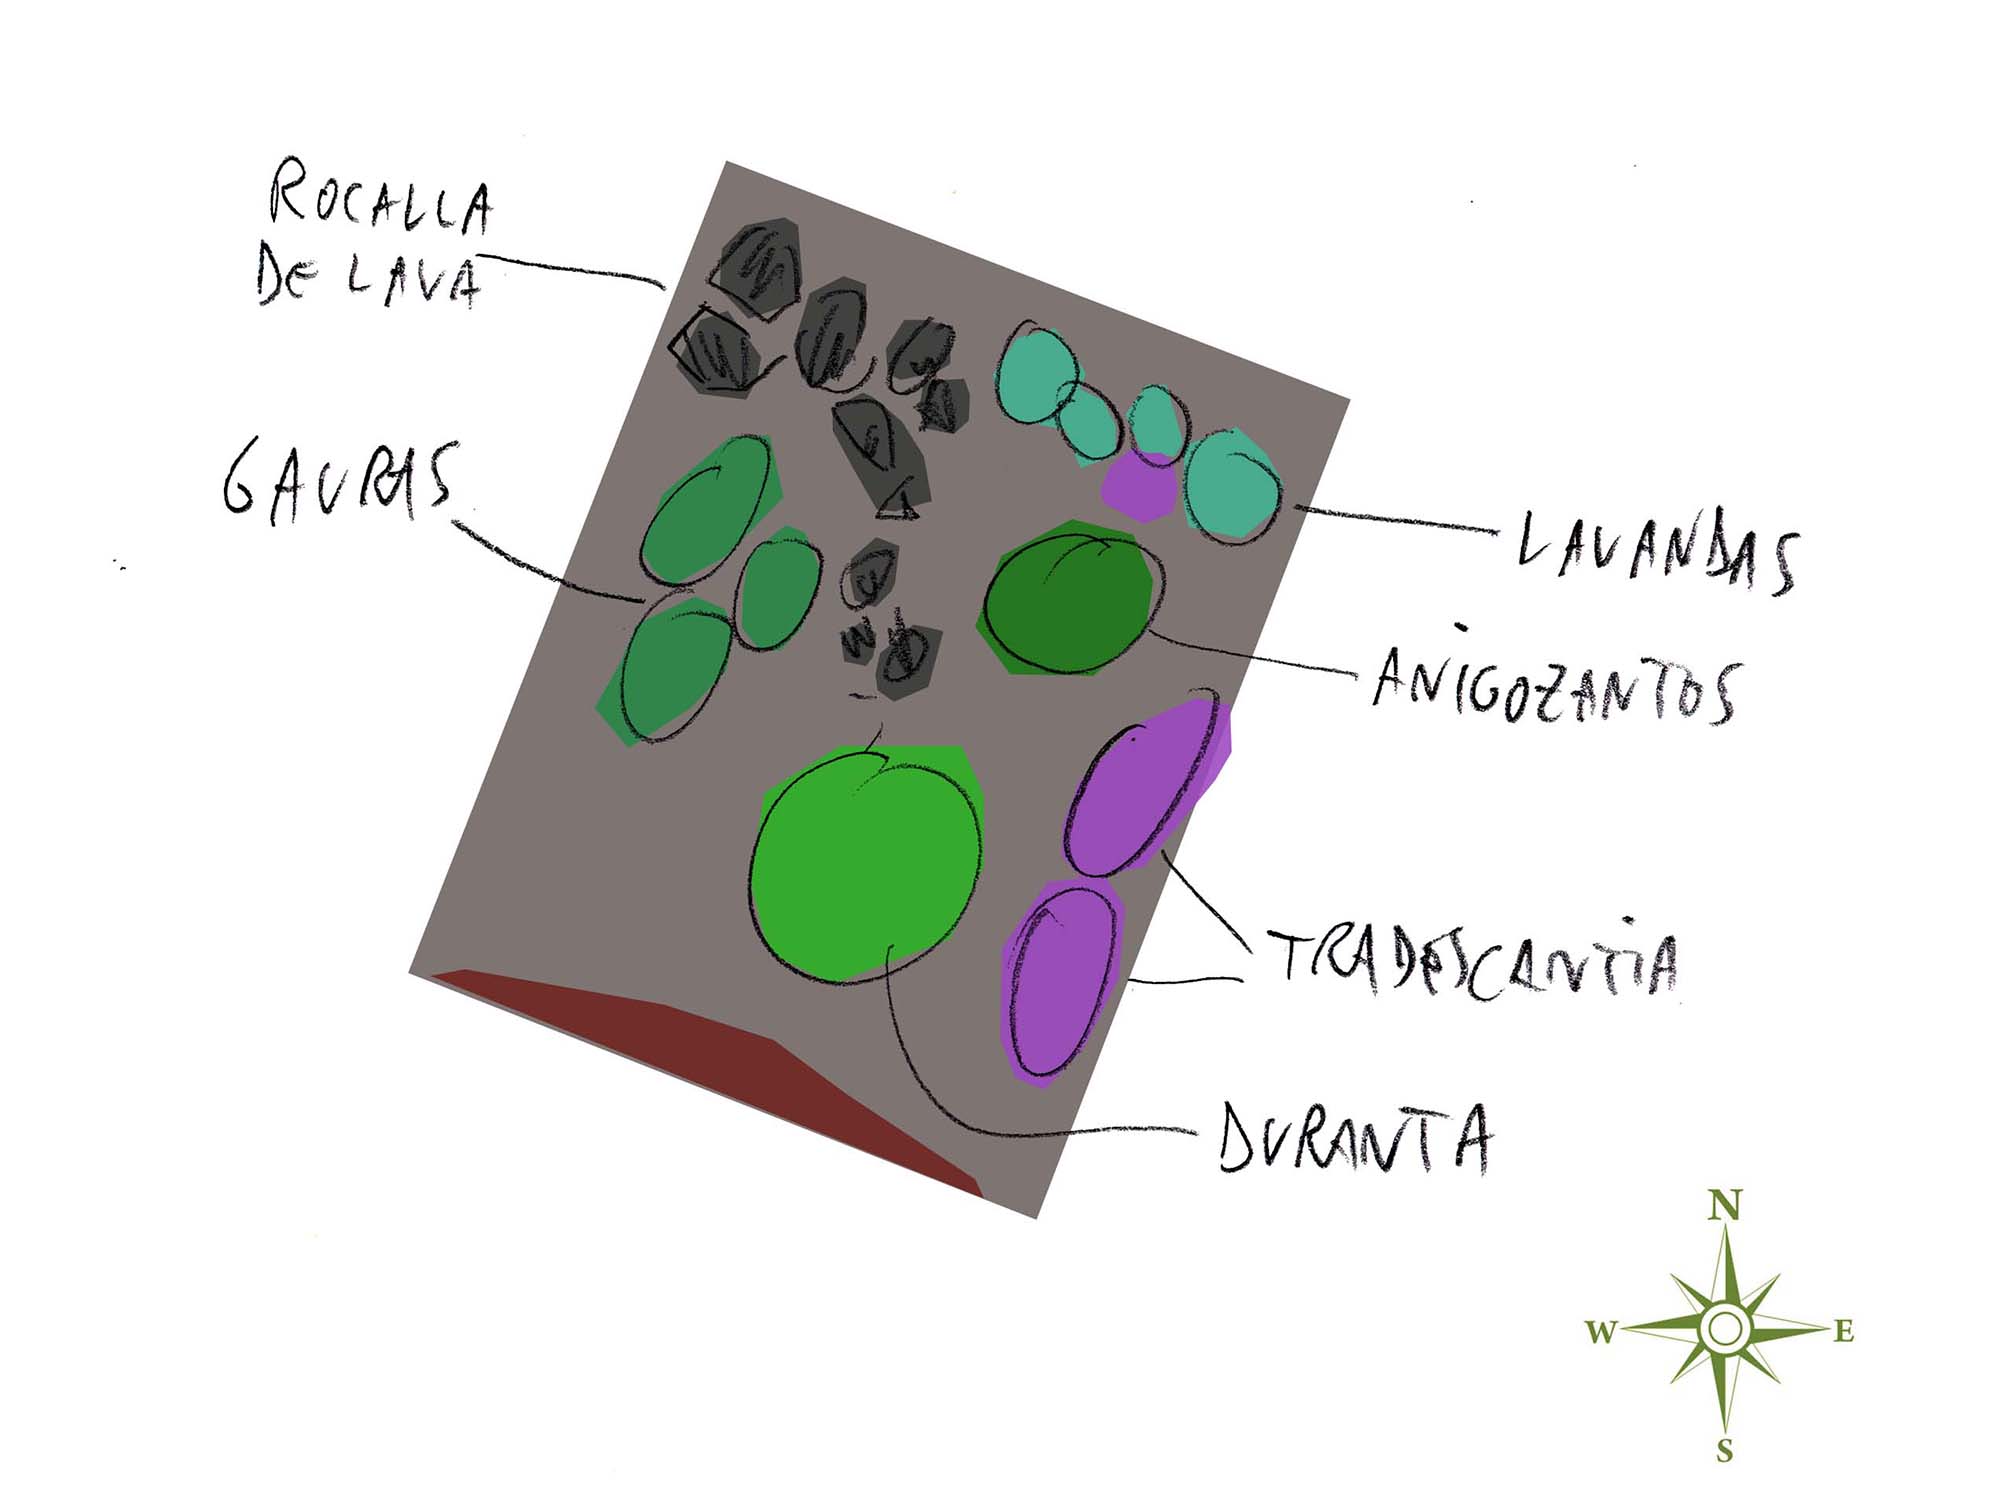 ROCALLA
DE LAVA
GAURAS
LAVANDAS
ANIGOZANTOS
TRADESCANTIA
DURANTA
N
W
E
S